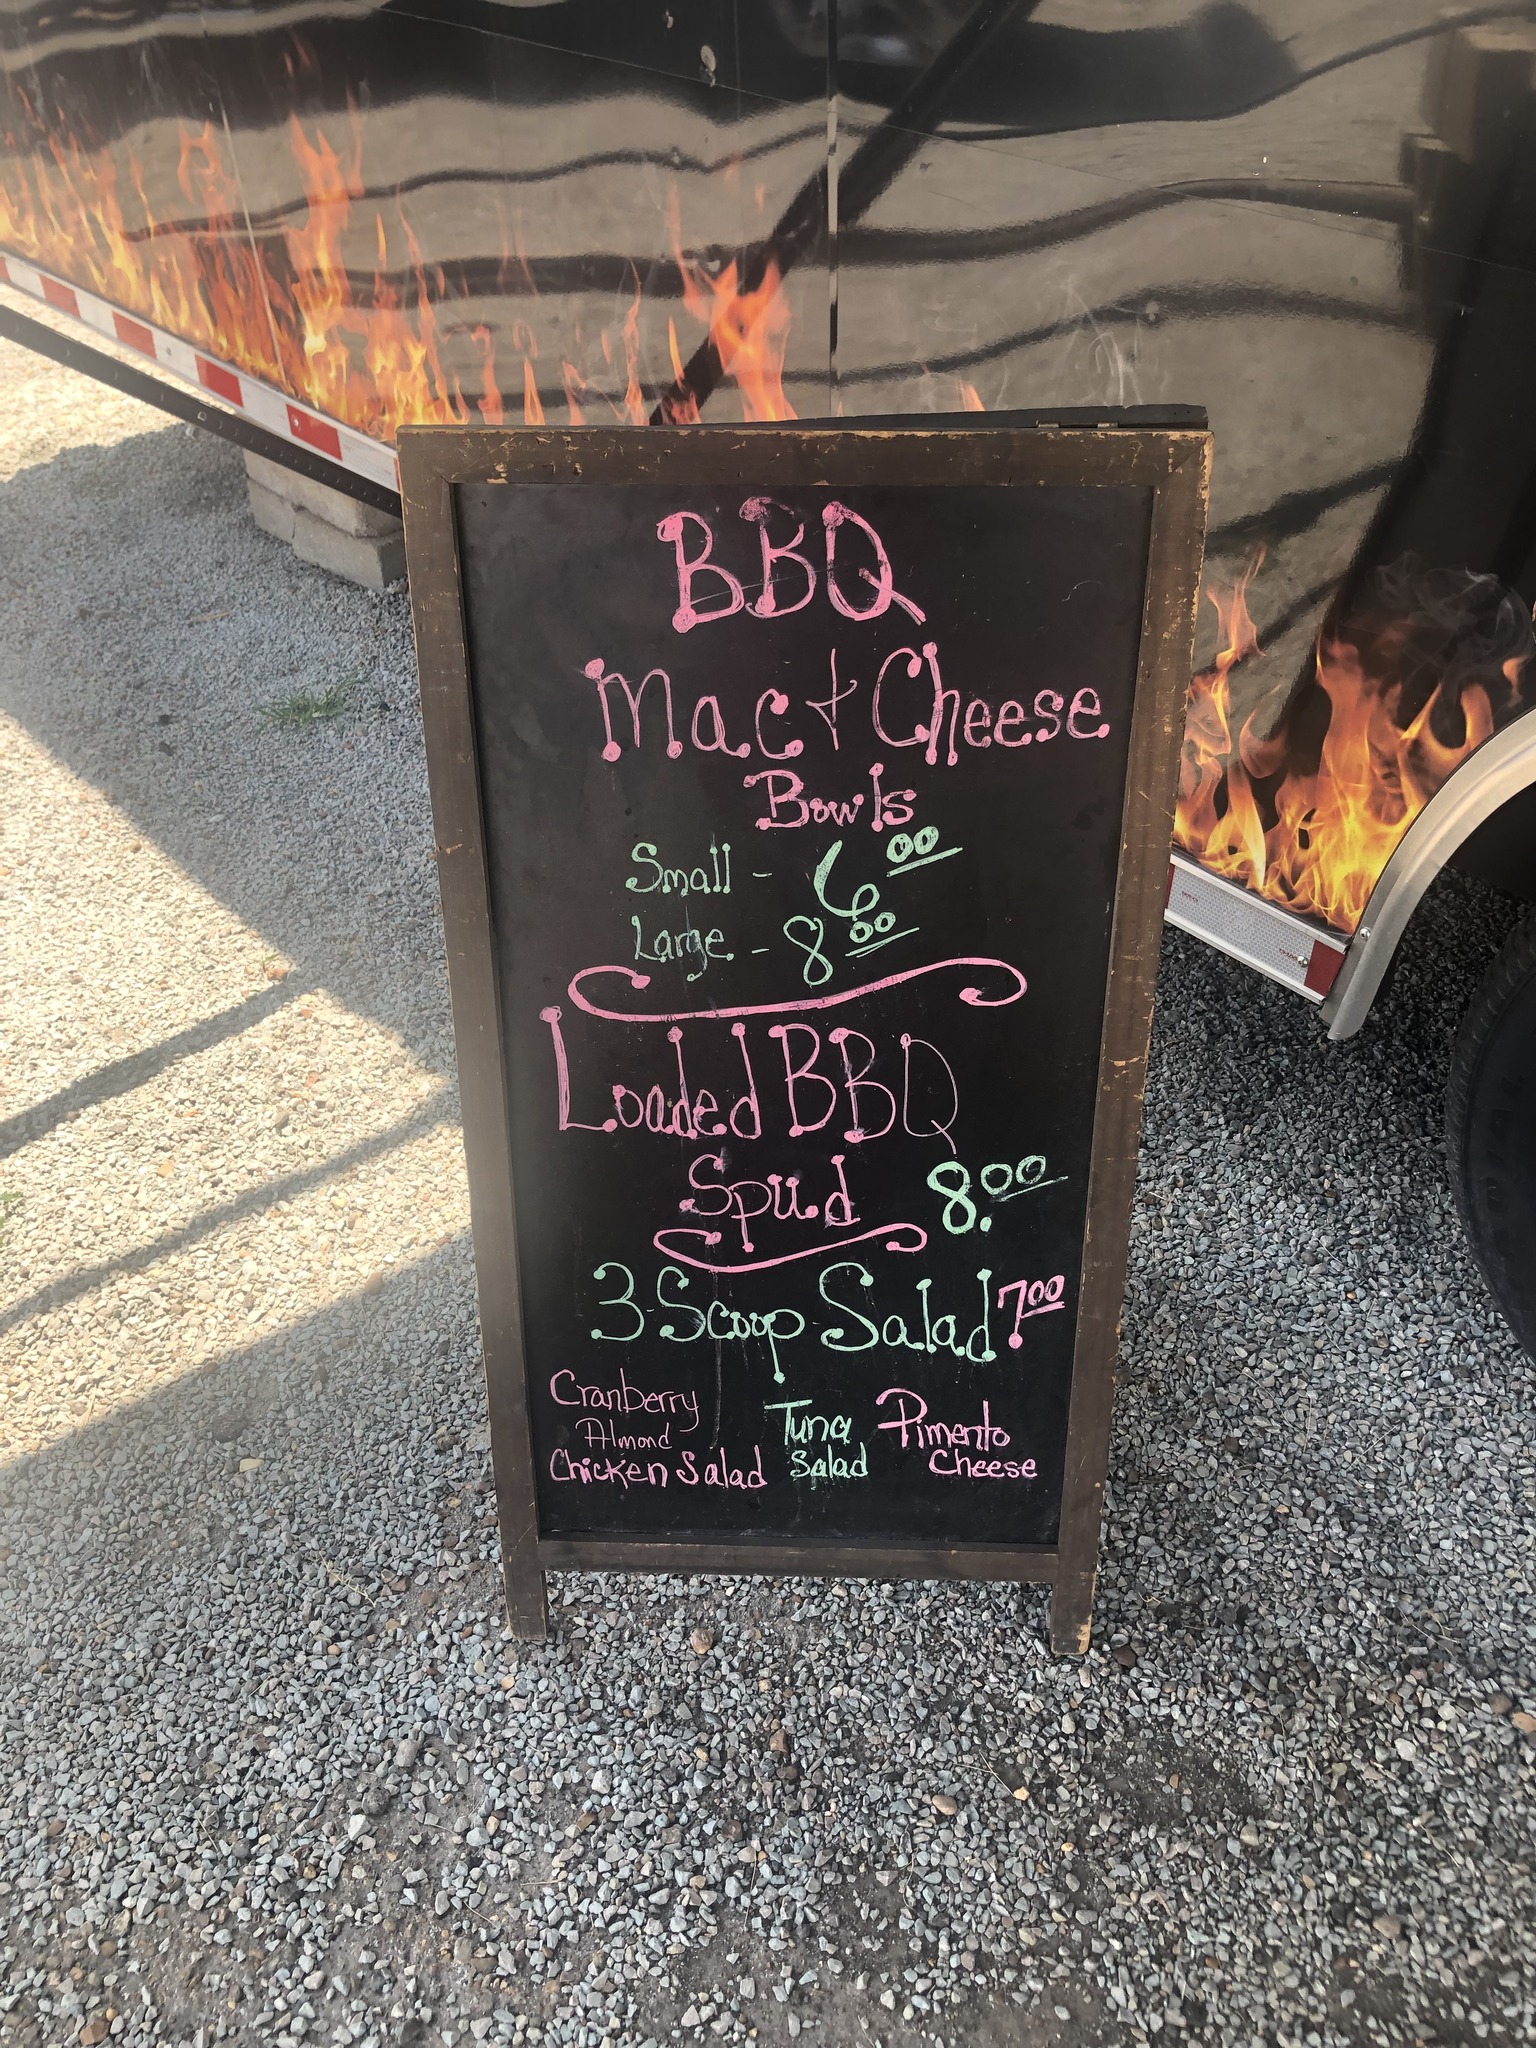 BBQ
Mac & Cheese
Bowls
Small - 6.00
Large - 8.00
Loaded BBQ
Spud 8.00
3-Scoop Salad 7.00
Cranberry
Almond
Chicken Salad
Tuna
Salad
Pimento
Cheese